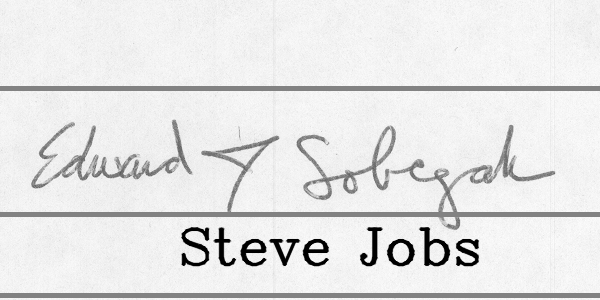 Edward J Sobczak
Steve Jobs